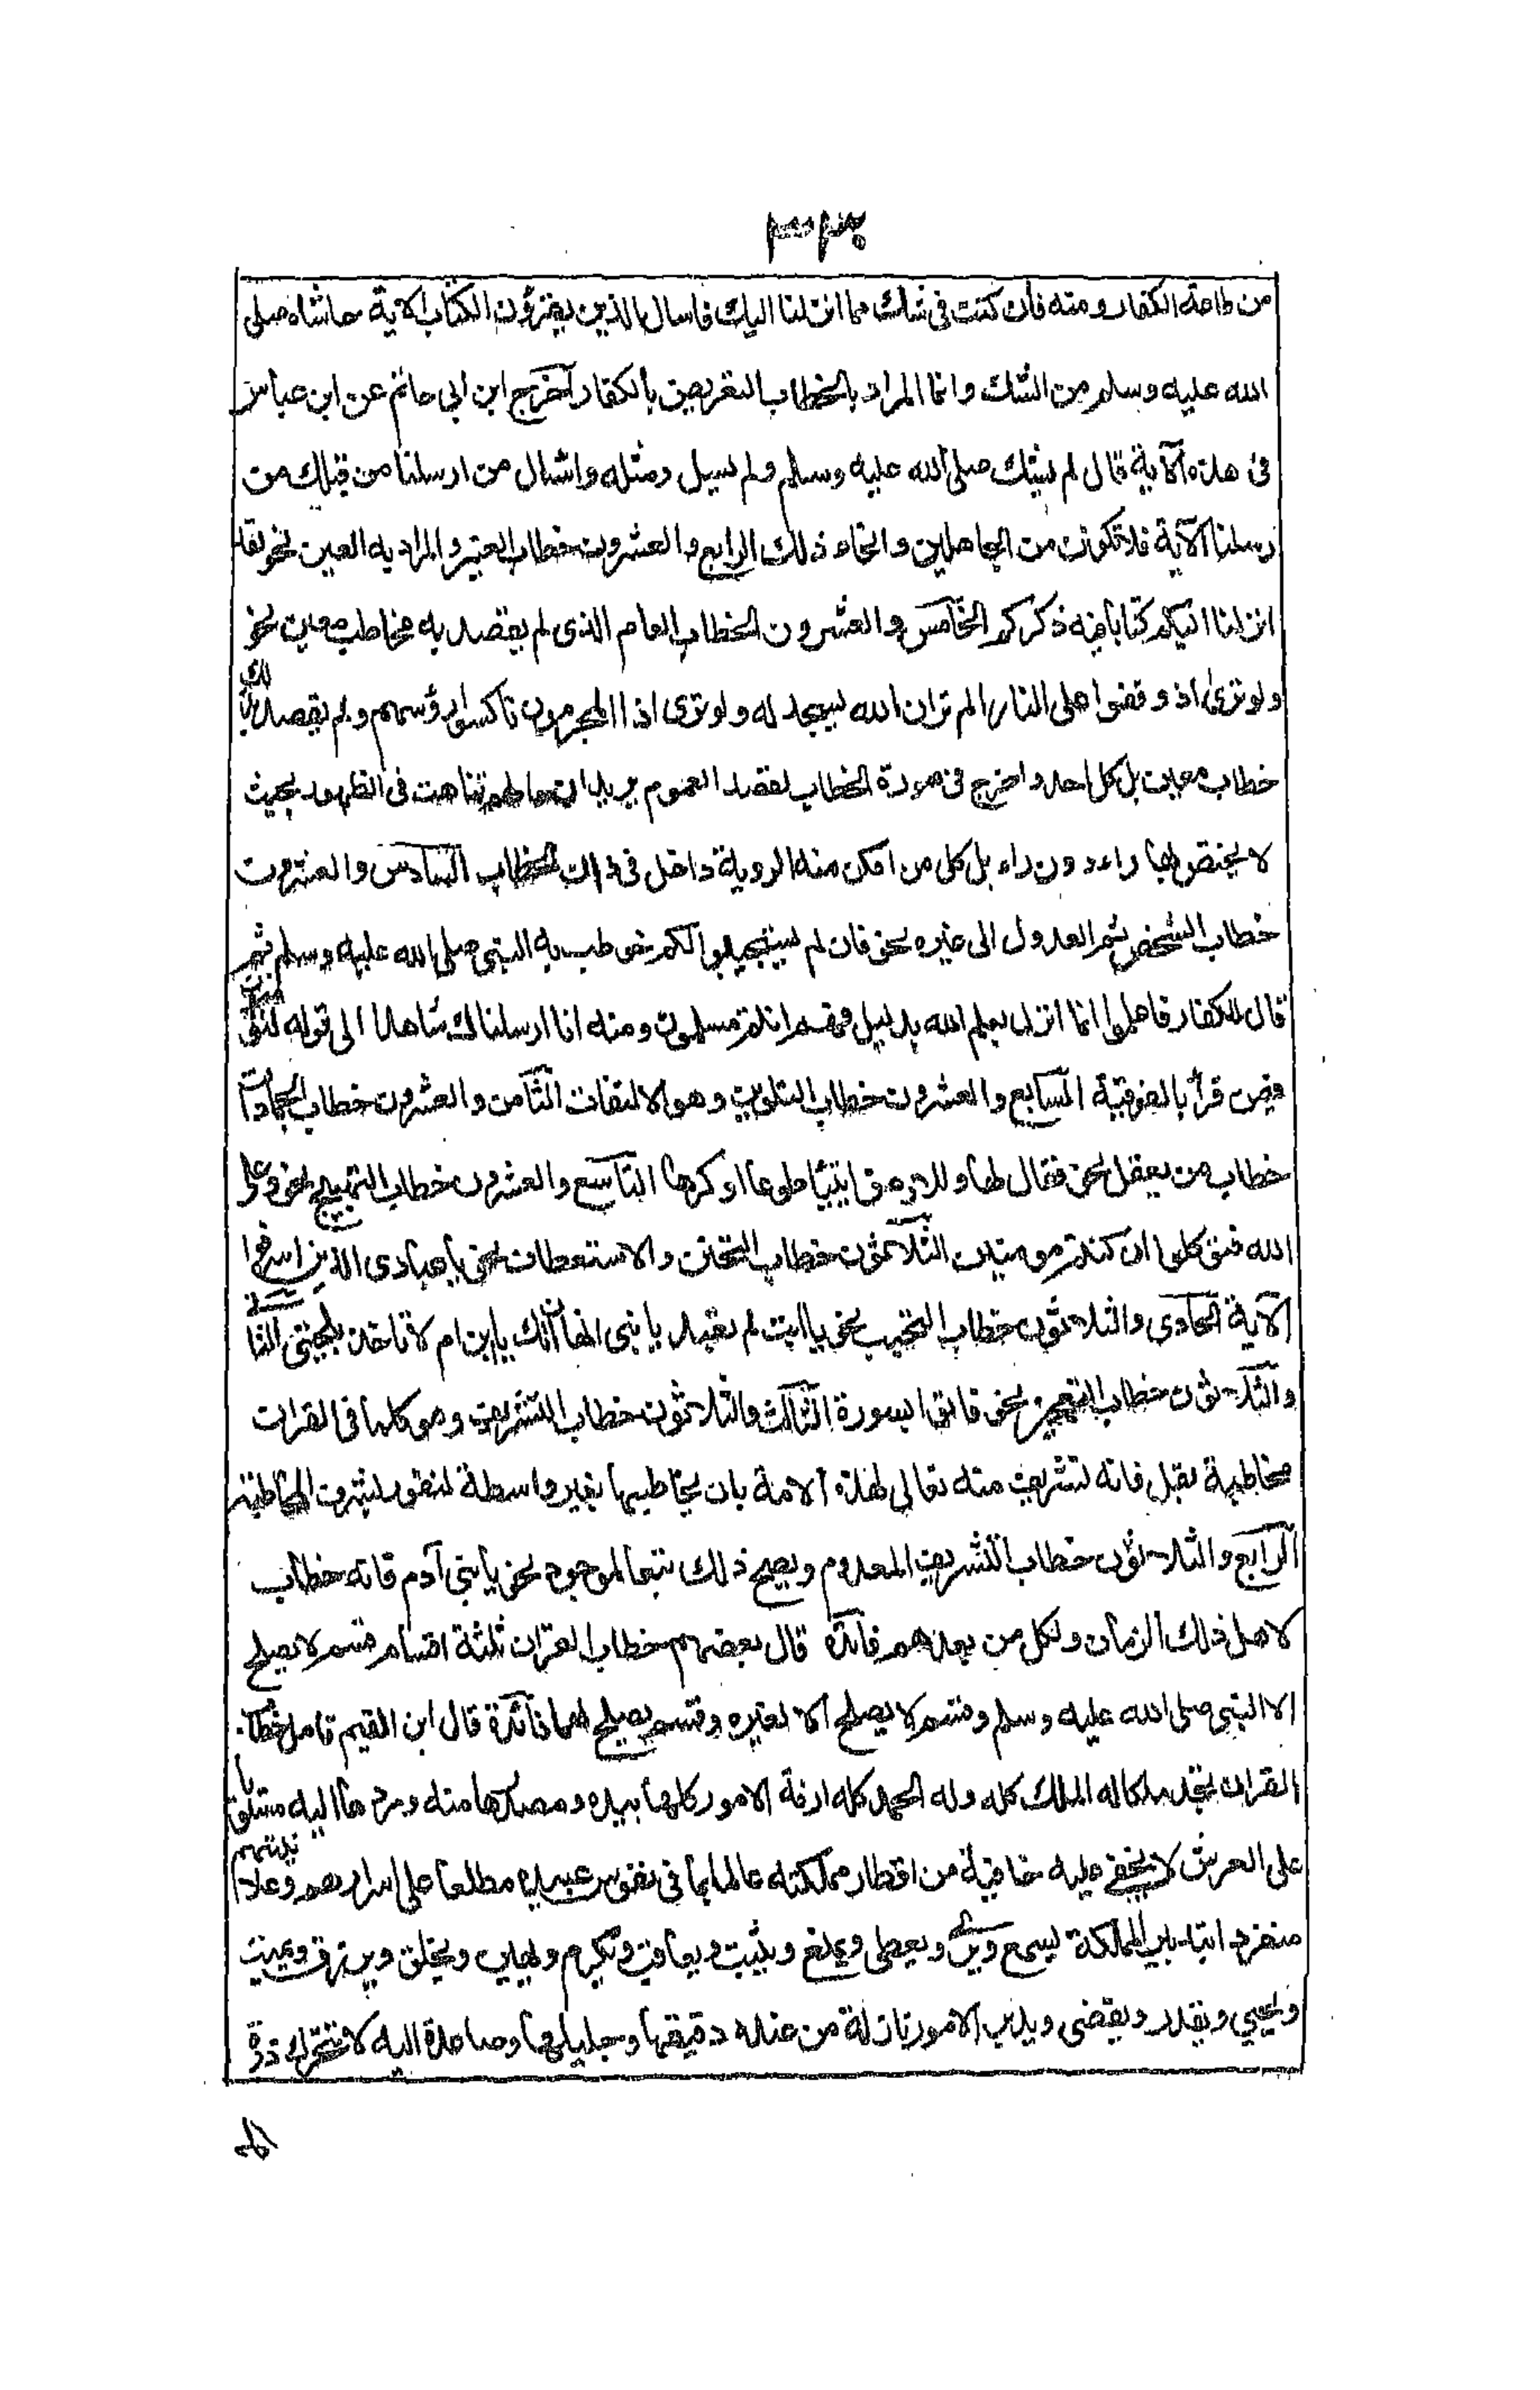 من طاعة الكفار ومنه فان كنت فى شك مما انزلنا اليك فاسال الذين يقرؤن الكتاب الاية حاشاه صلى
الله عليه وسلم من الشك وانما المراد بالخطاب التعريض بالكفار اخرج ابن ابى حاتم عن ابن عباس
فى هذه الآية قال لم يشك صلى الله عليه وسلم ولم يسيل ومثله واسال من ارسلنا من قبلك من
رسلنا الآية فلا تكونن من الجاهلين وانحاء ذلك الرابع والعشرون خطاب الغير والمراد به العين نحو لقد
انزلنا اليكم كتابا فيه ذكركم الخامس والعشرون الخطاب العام الذى لم يقصد به مخاطب معين نحو
ولو ترى اذ وقفوا على النار الم تر ان الله يسجد له ولو ترى اذ المجرمون ناكسوا رؤسهم ولم يقصد بذلك
خطاب معين بل كل احد واخرج فى صورة الخطاب لقصد العموم يريد ان حالهم تناهت فى الظهور بحيث
لا يختص بها راء دون راء بل كل من امكن منه الروية داخل فى ذلك الخطاب السادس والعشرون
خطاب الشخص ثم العدول الى غيره نحو فان لم يستجيبوا لكم خوطب به النبى صلى الله عليه وسلم ثم
قال للكفار فاعلموا انما انزل بعلم الله بدليل فهل انتم مسلمون ومنه انا ارسلناك شاهدا الى قوله لتؤمنوا
فيمن قرأ بالفوقية السابع والعشرون خطاب التلوين وهو الالتفات الثامن والعشرون خطاب الجمادات
خطاب من يعقل نحو فقال لها وللارض ائتيا طوعا او كرها التاسع والعشرون خطاب التهييج نحو وعلى
الله فتوكلوا ان كنتم مومنين الثلاثون خطاب التحنن والاستعطاف نحو يا عبادى الذين اسرفوا
الآية الحادى والثلاثون خطاب التحبب نحو يا ابت لم تعبد يا بنى انها ان تك يا ابن ام لا تاخذ بلحيتى الثانى
والثلاثون خطاب التعجيز نحو فاتوا بسورة الثالث والثلاثون خطاب التشريف وهو كلما فى القران
مخاطبة بقل فانه تشريف منه تعالى لهذه الامة بان يخاطبها بغير واسطة لتفوز بشرف المخاطبة
الرابع والثلاثون خطاب التشريف المعدوم ويصح ذلك تبعا لموجود نحو يا بنى آدم فانه خطاب
لاهل ذلك الزمان ولكل من بعدهم فائدة قال بعضهم خطاب القران ثلثة اقسام قسم لا يصلح
الا النبى صلى الله عليه وسلم وقسم لا يصلح الا لغيره وقسم يصلح لهما فائدة قال ابن القيم تامل خطاب
القران تجد ملكا له الملك كله وله الحمد كله ازمة الامور كلها بيده ومصدرها منه ومردها اليه مستويا
على العرش لا يخفى عليه خافية من اقطار مملكته عالما بما فى نفوس عبيده مطلعا على اسرارهم وعلانيتهم
منفردا بتدبير المملكة يسمع ويرى ويعطى ويمنع ويثيب ويعاقب ويكرم ويهين ويخلق ويرزق ويميت
ويحيى ويقدر ويقضى ويدبر الامور نازلة من عنده دقيقها وجليلها وصاعدة اليه لا تتحرك ذرة